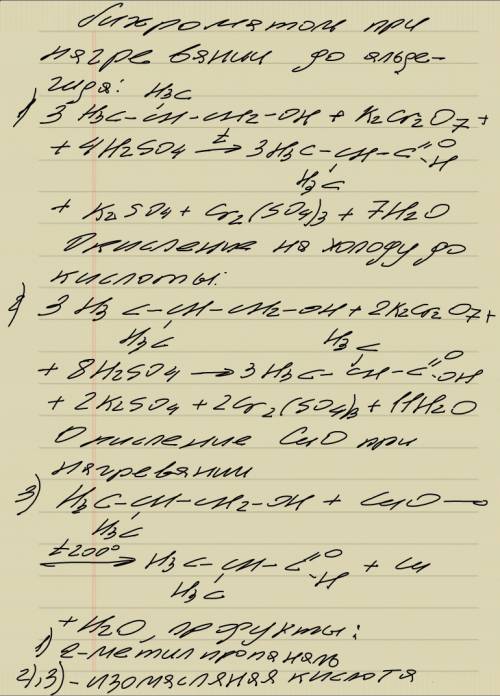 бихроматом при
нагревании до альде-
гида: H3C
1) 3 H3C-CH-CH2-OH + K2Cr2O7+
+ 4H2SO4 t→ 3H3C-CH-C=O-H
H3C
+ K2SO4 + Cr2(SO4)3 + 7H2O
Окисление на холоду до
кислоты:
2) 3 H3C-CH-CH2-OH + 2K2Cr2O7+
H3C H3C
+ 8H2SO4 → 3H3C-CH-C=O-OH
+ 2K2SO4 + 2Cr2(SO4)3 + 11H2O
Окисление CuO при
нагревании
3) H3C-CH-CH2-OH + CuO —
H3C
t 200° → H3C-CH-C=O-H + Cu
H3C
+ H2O, продукты:
1) 2-метилпропаналь
2),3) - изомасляная кислота